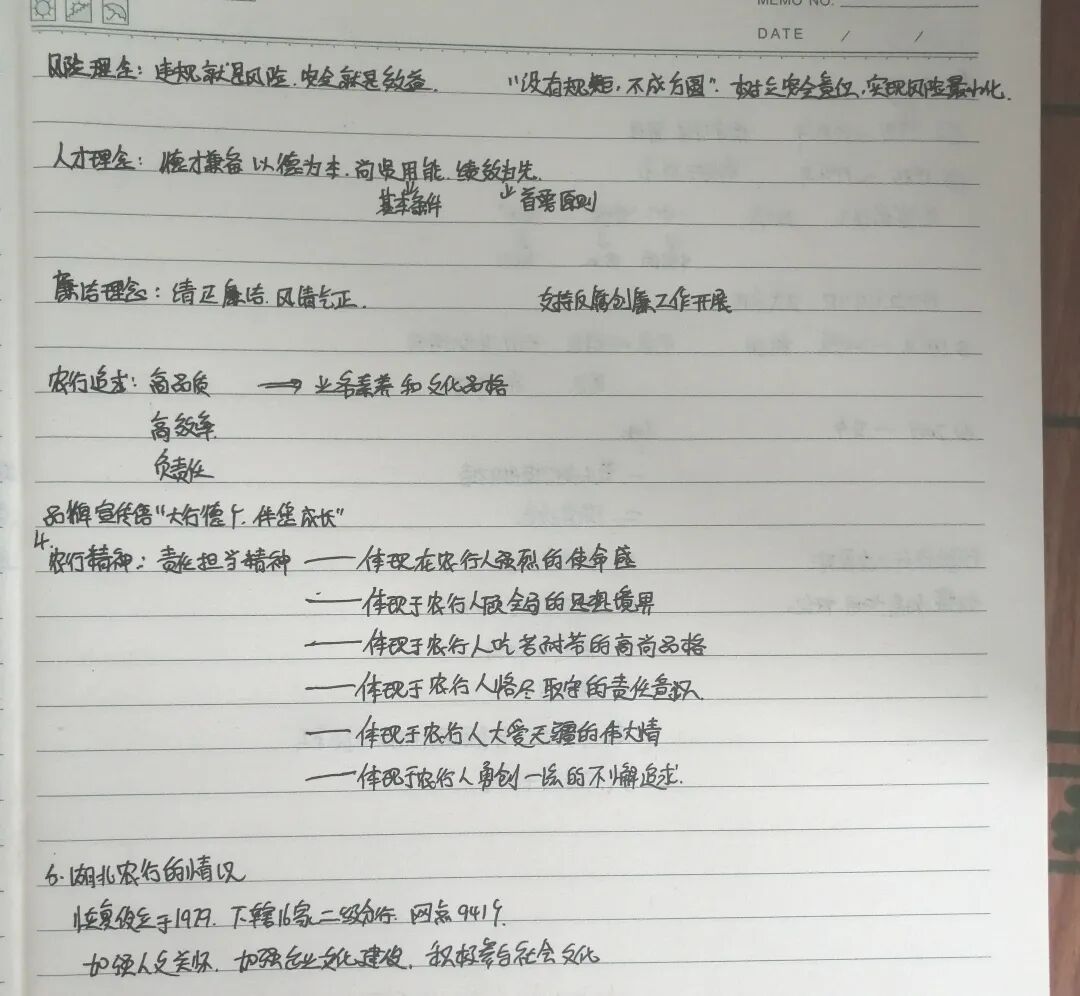 MEMO NO.
DATE / /
风险理念：违规就是风险，安全就是效益. "没有规矩，不成方圆". 树立安全责任，实现风险最小化.
人才理念：德才兼备 以德为本，尚贤用能，绩效为先.
基本条件 首要原则
廉洁理念：清正廉洁，风清气正. 支持反腐创廉工作开展
农行追求：高品质 → 业务素养和文化品格
高效率
负责任
品牌宣传语"大行德广，伴您成长"
4.
农行精神：责任担当精神 —— 体现在农行人强烈的使命感
—— 体现于农行人顾全局的思想境界
—— 体现于农行人吃苦耐劳的高尚品格
—— 体现于农行人恪尽职守的责任意识
—— 体现于农行人大爱无疆的伟大情
—— 体现于农行人勇创一流的不懈追求.
6.湖北农行的情况
恢复设立于1979. 下辖16家二级分行. 网点941个.
加强人文关怀，加强企业文化建设，积极参与社会文化